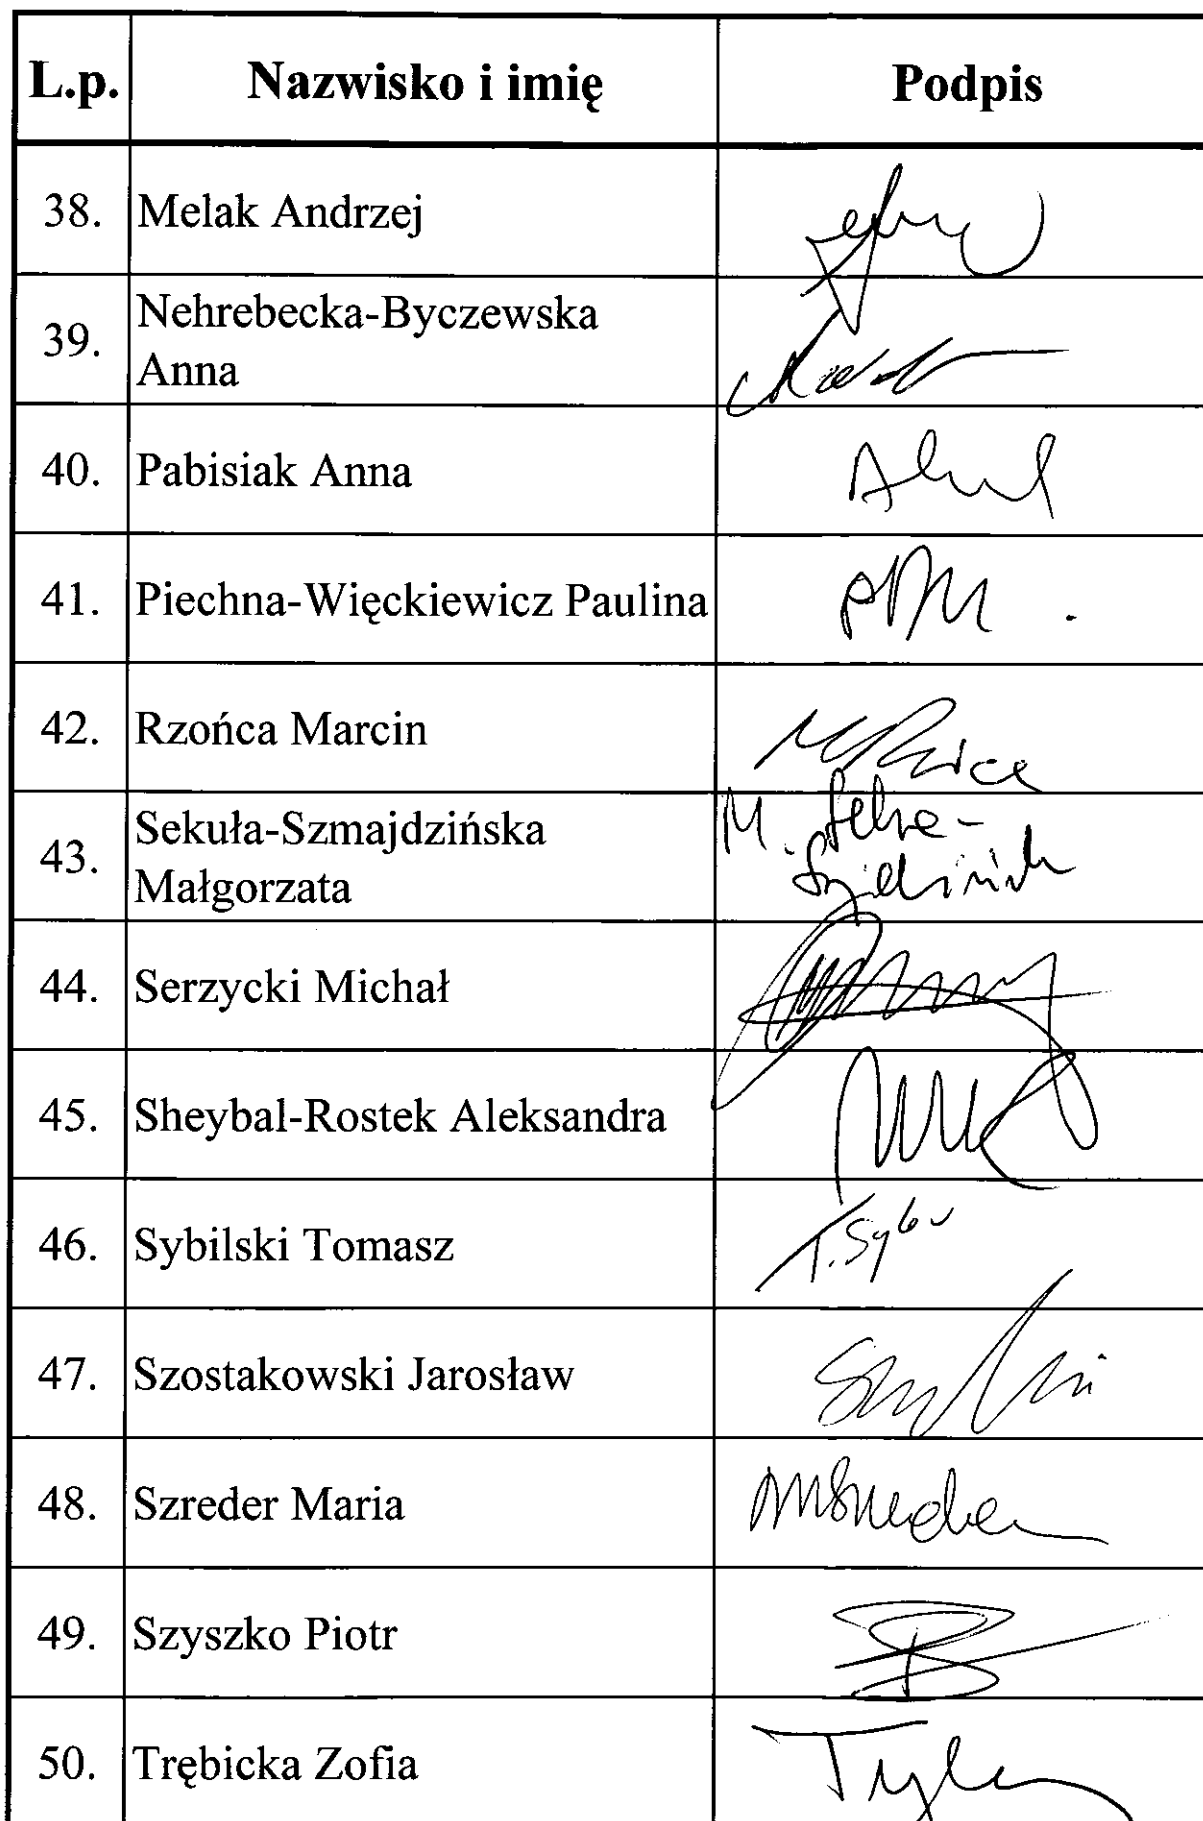 L.p. Nazwisko i imię Podpis
38. Melak Andrzej
39. Nehrebecka-Byczewska
Anna
40. Pabisiak Anna
41. Piechna-Więckiewicz Paulina
42. Rzońca Marcin
43. Sekuła-Szmajdzińska
Małgorzata
44. Serzycki Michał
45. Sheybal-Rostek Aleksandra
46. Sybilski Tomasz
47. Szostakowski Jarosław
48. Szreder Maria
49. Szyszko Piotr
50. Trębicka Zofia